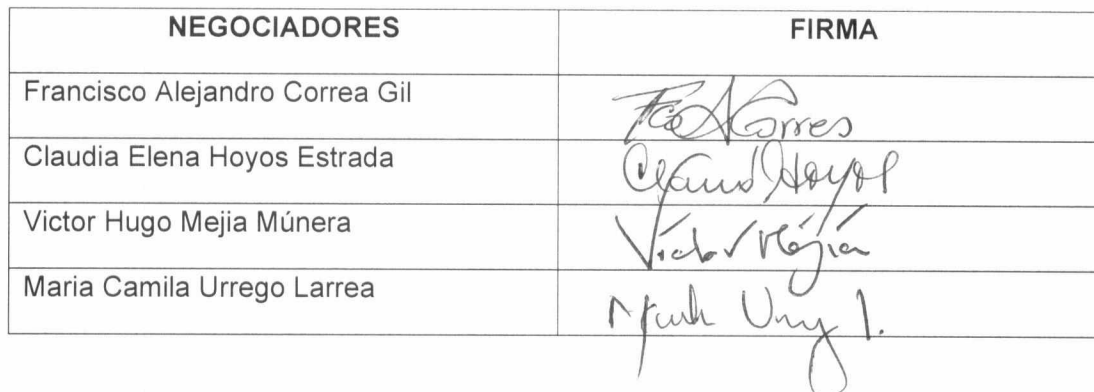 NEGOCIADORES FIRMA
Francisco Alejandro Correa Gil
Claudia Elena Hoyos Estrada
Victor Hugo Mejia Múnera Victor Mejía
Maria Camila Urrego Larrea